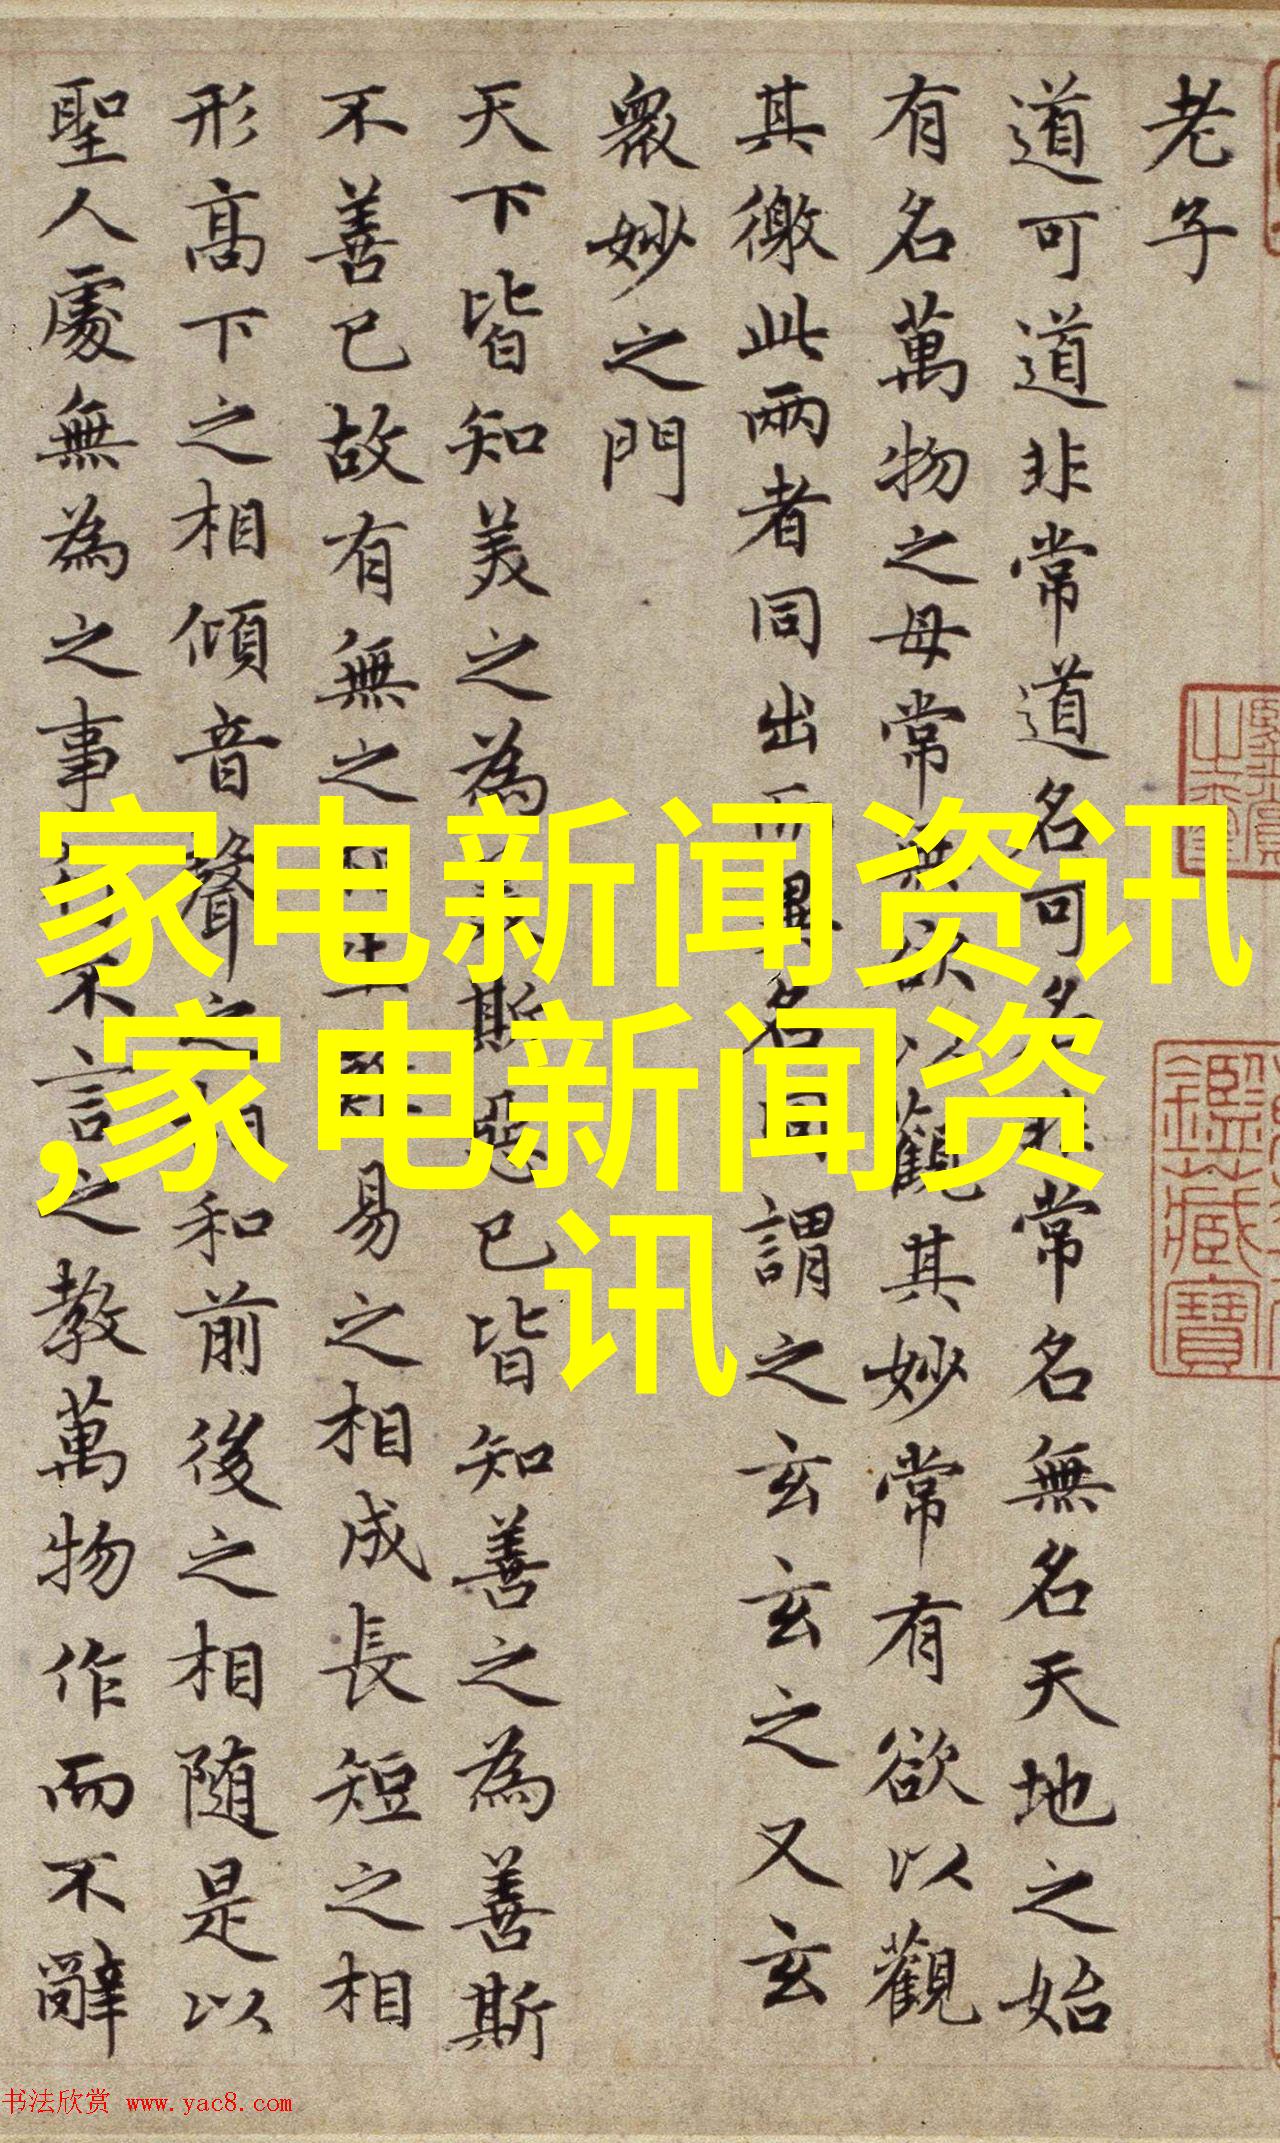 老子
道可道非常道名可名非常名無名天地之始
有名萬物之母常無欲以觀其妙常有欲以觀
其徼此兩者同出而異名同謂之玄玄之又玄
衆妙之門
天下皆知美之為美斯惡已皆知善之為善斯
不善已故有無之相生難易之相成長短之相
形髙下之相傾音聲之相和前後之相随是以
聖人處無為之事 不言之教萬物作而不辭
家电新闻资讯
,家电新闻资
讯
鑑藏寶
书法欣赏 www.yac8.com